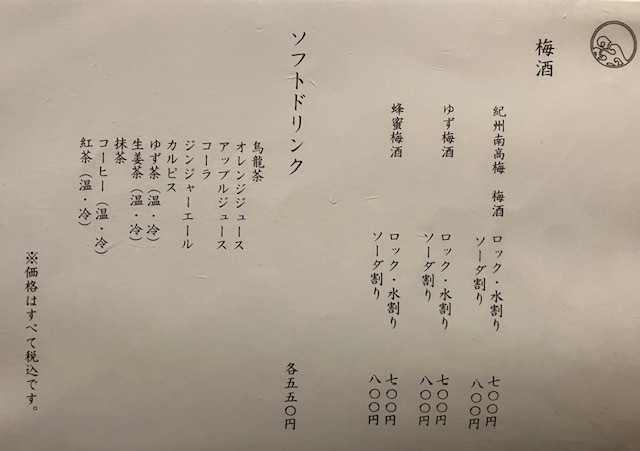 梅酒
紀州南高梅 梅酒
ロック・水割り 七〇〇円
ソーダ割り 八〇〇円
ゆず梅酒
ロック・水割り 七〇〇円
ソーダ割り 八〇〇円
蜂蜜梅酒
ロック・水割り 七〇〇円
ソーダ割り 八〇〇円
ソフトドリンク
各五五〇円
烏龍茶
オレンジジュース
アップルジュース
コーラ
ジンジャーエール
カルピス
ゆず茶(温・冷)
生姜茶(温・冷)
抹茶
コーヒー(温・冷)
紅茶(温・冷)
※価格はすべて税込です。